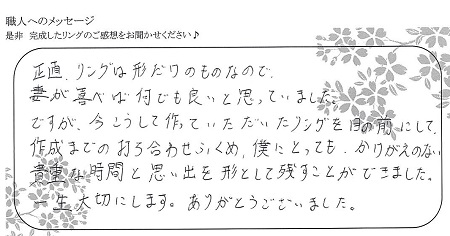 職人へのメッセージ
是非 完成したリングのご感想をお聞かせください♪
正直、リングは形だけのものなので、
妻が喜べば何でも良いと思っていました。
ですが、今こうして作っていただいたリングを目の前にして、
作成までの打ち合わせふくめ、僕にとっても、かけがえのない
貴重な時間と思い出を形として残すことができました。
一生大切にします。ありがとうございました。